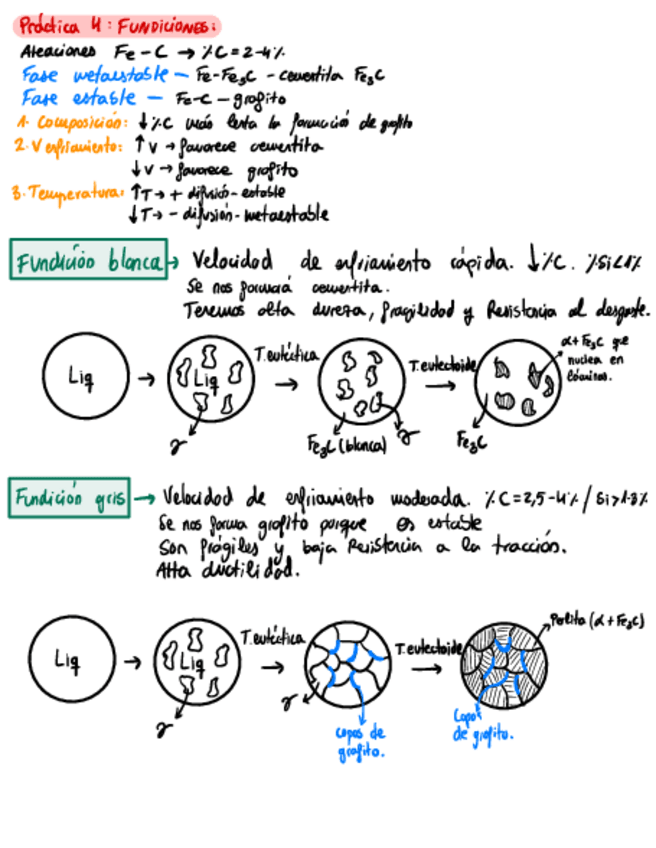 Práctica 4: FUNDICIONES:
Aleaciones Fe-C → %C=2-4%
Fase metaestable — Fe-Fe₃C - cementita Fe₃C
Fase estable — Fe-C - grafito
1. Composición: ↓%C más lenta la formación de grafito
2. V enfriamiento: ↑V → favorece cementita
↓V → favorece grafito
3. Temperatura: ↑T → + difusión - estable
↓T → - difusión - metaestable
Fundición blanca → Velocidad de enfriamiento rápida. ↓%C. %Si<1%
Se nos formará cementita.
Tenemos alta dureza, fragilidad y Resistencia al desgaste.
Liq → Liq T.eutéctica → T.eutectoide → α+Fe₃C que
nuclea en
láminas.
γ Fe₃C (blanca) γ Fe₃C
Fundición gris → Velocidad de enfriamiento moderada. %C=2,5-4% / Si>1-3%
Se nos forma grafito porque es estable
Son frágiles y baja Resistencia a la tracción.
Alta ductilidad.
Liq → Liq T.eutéctica → T.eutectoide → Perlita (α+Fe₃C)
γ γ copos de
grafito.
Copos
de grafito.